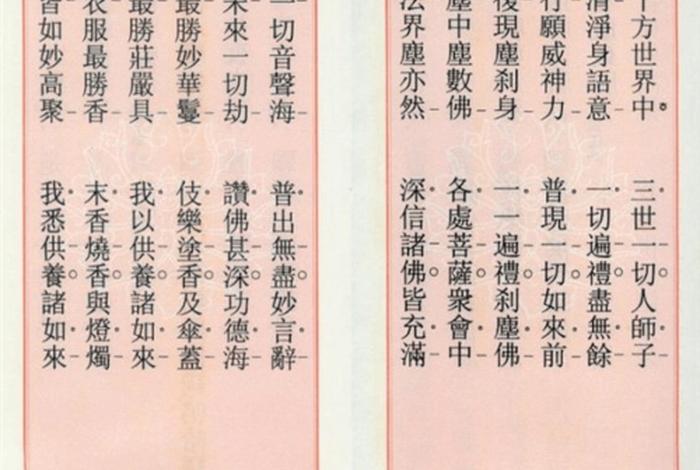 十方世界中　三世一切人師子
清淨身語意　一切遍禮盡無餘
行願威神力　普現一切如來前
復現塵剎身　一一遍禮剎塵佛
塵中塵數佛　各處菩薩眾會中
法界塵亦然　深信諸佛皆充滿
一切音聲海　普出無盡妙言辭
未來一切劫　讚佛甚深功德海
最勝妙華鬘　伎樂塗香及傘蓋
最勝莊嚴具　我以供養諸如來
衣服最勝香　末香燒香與燈燭
皆如妙高聚　我悉供養諸如來